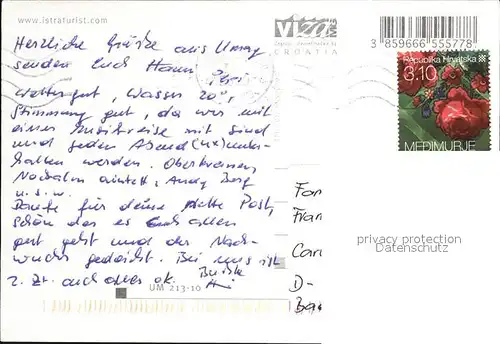 www.istraturist.com
VIZA
CROATIA
3 859666 555778
Republika Hrvatska
3.10
MEĐIMURJE
Herzliche Grüße aus Umag
senden Euch Hann
Wetter gut, Wasser 20°,
Stimmung gut, da wir mit
einer Musikreise mit sind
und jeden Abend (4x) unter-
halten werden. Oberkrainer,
Nockalm Quintett, Andy Borg
u.s.w.
Danke für deine nette Post,
schön das es Euch allen
gut geht und der Nach-
wuchs gedeiht. Bei uns ist
z. Zt. auch alles ok.
Fam
Fran
Carl
D-
privacy protection
Datenschutz
UM 213-10